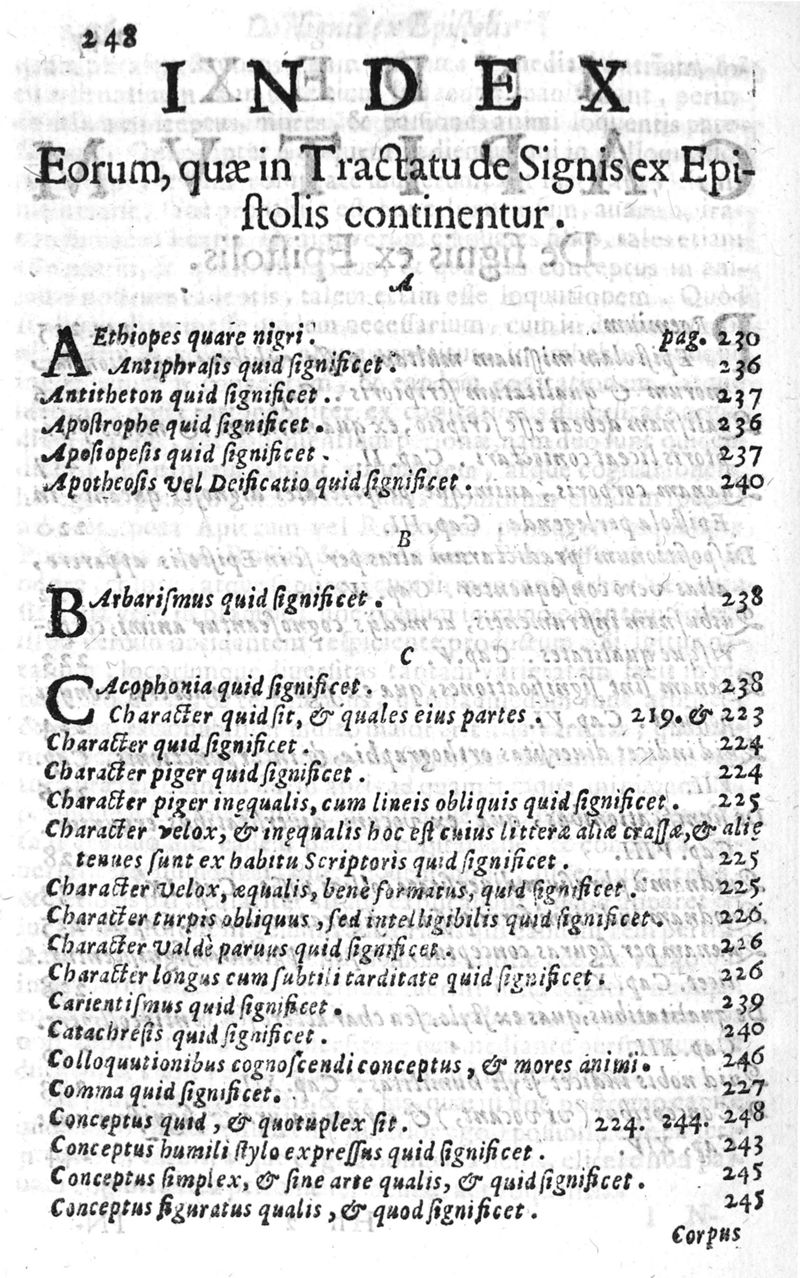 248
INDEX
Eorum, quæ in Tractatu de Signis ex Epi-
ſtolis continentur.
A
AEthiopes quare nigri. pag. 230
Antiphraſis quid ſignificet. 236
Antitheton quid ſignificet. 237
Apoſtrophe quid ſignificet. 236
Apoſiopeſis quid ſignificet. 237
Apotheoſis vel Deificatio quid ſignificet. 240
B
BArbariſmus quid ſignificet. 238
C
CAcophonia quid ſignificet. 238
Character quid ſit, & quales eius partes. 219. & 223
Character quid ſignificet. 224
Character piger quid ſignificet. 224
Character piger inęqualis, cum lineis obliquis quid ſignificet. 225
Character velox, & inęqualis hoc eſt cuius litteræ aliæ craſſæ, & alię
tenues ſunt ex habitu Scriptoris quid ſignificet. 225
Character velox, æqualis, benè formatus, quid ſignificet. 225
Character turpis obliquus, ſed intelligibilis quid ſignificet. 226
Character valdè paruus quid ſignificet. 226
Character longus cum ſubtili tarditate quid ſignificet. 226
Carientiſmus quid ſignificet. 239
Catachreſis quid ſignificet. 240
Colloquutionibus cognoſcendi conceptus, & mores animi. 246
Comma quid ſignificet. 227
Conceptus quid, & quotuplex ſit. 224. 244. 248
Conceptus humili ſtylo expreſſus quid ſignificet. 243
Conceptus ſimplex, & ſine arte qualis, & quid ſignificet. 245
Conceptus figuratus qualis, & quod ſignificet. 245
Corpus